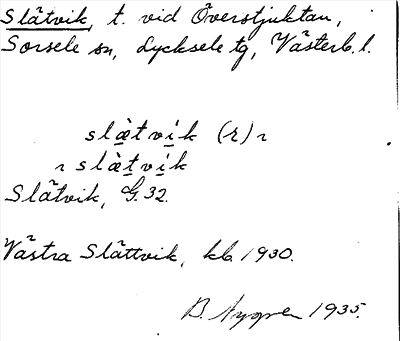 Slåtvik, t. vid Överstjuktan,
Sorsele sn, Lycksele tg, Västerb. l.
slæ̀tvik (r) ɿ
ɿ slæ̀tvik
Slåtvik, G. 32.
Västra Slåttvik, kb. 1930.
B. Nygren 1935.